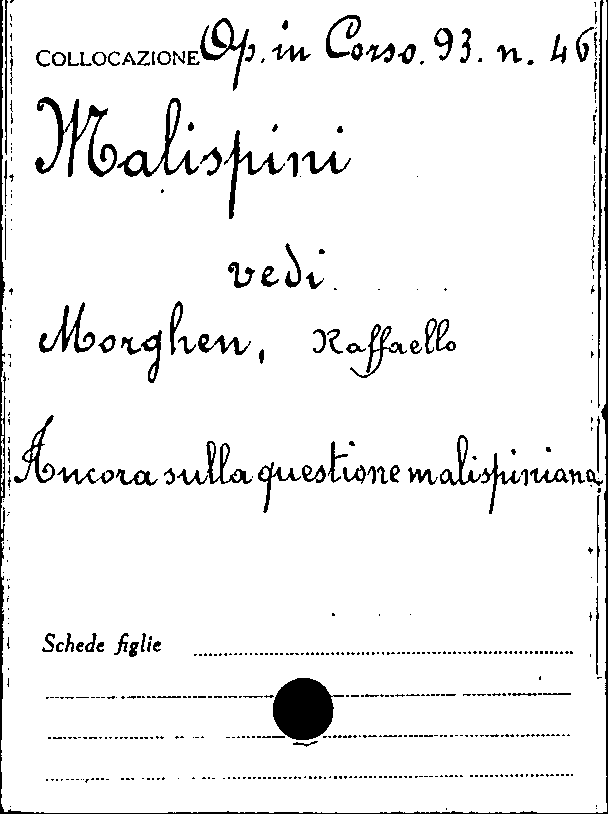 COLLOCAZIONE Op. in Corso. 93. n. 46
Malispini
vedi
Morghen, Raffaello
Ancora sulla questione malispiniana
Schede figlie